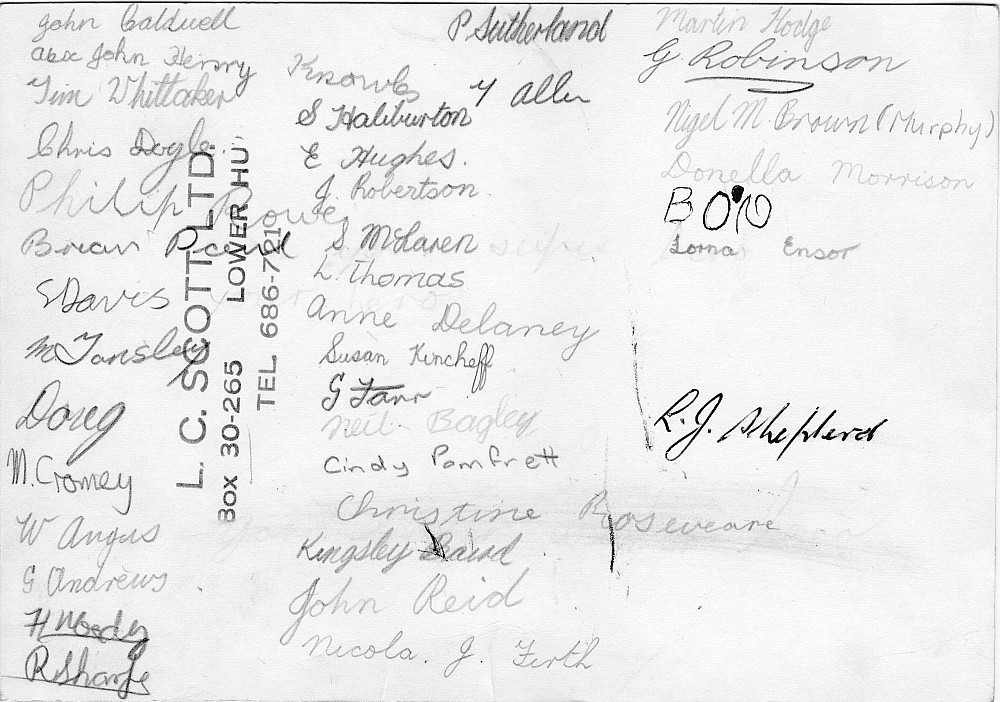 John Caldwell
aka John Henry
Tim Whittaker
Chris Doyle
Philip Rowe
Brian
S Davis
M Tansley
Doug
M. Cromey
W Angus
G Andrews
H Moody
R Sharpe
L. C. SCOTT LTD.
Box 30-265 LOWER HU
TEL 686-721
P Sutherland
Knowles
Y Allen
S Haliburton
E Hughes.
J. Robertson
S. McLaren
L. Thomas
Anne Delaney
Susan Kincheff
G Farr
Neil Bagley
Cindy Pomfrett
Christine Roseveare
Kingsley Baird
John Reid
Nicola. J. Firth
Martin Hodge
G Robinson
Nigel M. Brown (Murphy)
Donella Morrison
BON
Lorna Ensor
R. J. Shepherd